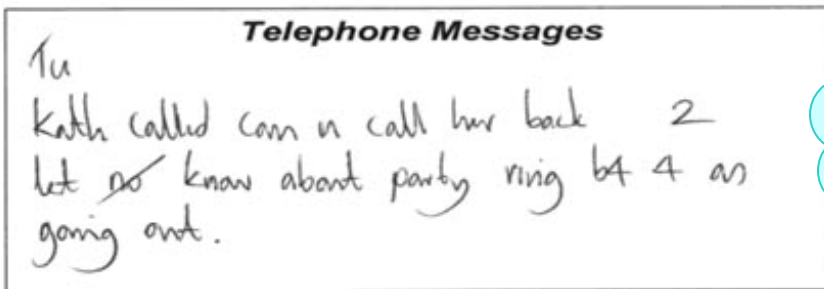 Telephone Messages
Tu
Kath called can u call her back 2
let no know about party ring b4 4 as
going out.